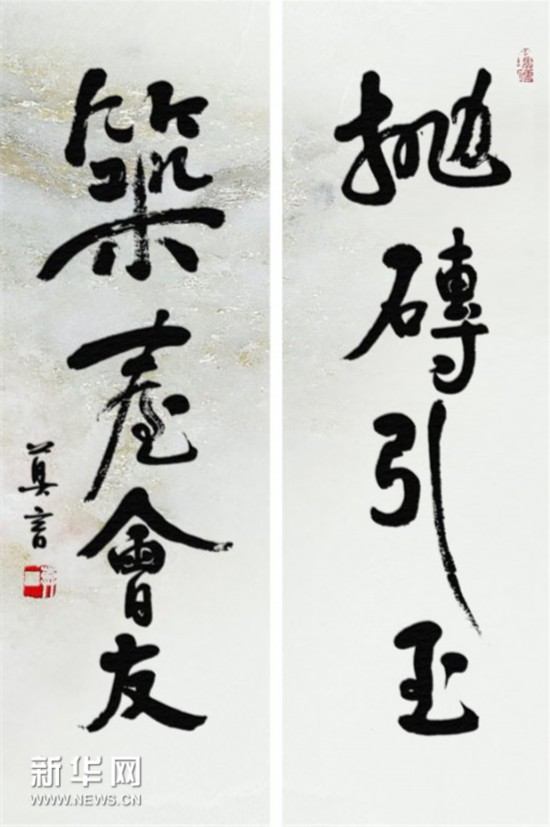 抛磚引玉
築臺會友
莫言
新华网
WWW.NEWS.CN